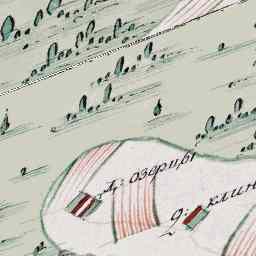 д: озерцы
д: клин